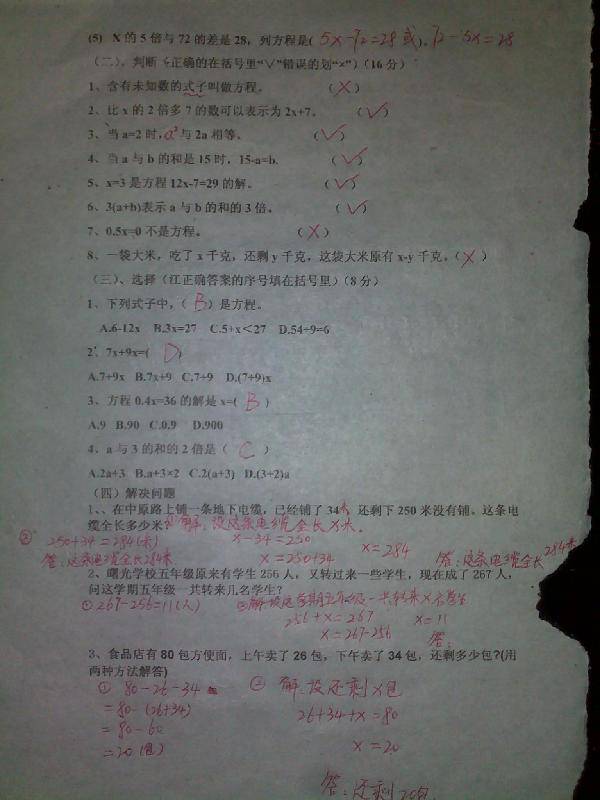 (5) X 的 5 倍与 72 的差是 28，列方程是( 5x-72=28 或 )。72-5x=28
(二)、判断（正确的在括号里“√”错误的划“×”）(16 分)
1、含有未知数的式子叫做方程。（×）
2、比 x 的 2 倍多 7 的数可以表示为 2x+7。（√）
3、当 a=2 时，a²与 2a 相等。（√）
4、当 a 与 b 的和是 15 时，15-a=b.（√）
5、x=3 是方程 12x-7=29 的解。（√）
6、3(a+b)表示 a 与 b 的和的 3 倍。（√）
7、0.5x=0 不是方程。（×）
8、一袋大米，吃了 x 千克，还剩 y 千克，这袋大米原有 x-y 千克。（×）
(三)、选择（江正确答案的序号填在括号里）(8 分)
1、下列式子中，（ B ）是方程。
A.6-12x B.3x=27 C.5+x＜27 D.54÷9=6
2、7x+9x=( D )
A.7+9x B.7x+9 C.7+9 D.(7+9)x
3、方程 0.4x=36 的解是 x=( B )
A.9 B.90 C.0.9 D.900
4、a 与 3 的和的 2 倍是（ C ）
A.2a+3 B.a+3×2 C.2(a+3) D.(3+2)a
(四）解决问题
1、、在中原路上铺一条地下电缆，已经铺了 34米 还剩下 250 米没有铺。这条电
缆全长多少米? 解：设这条电缆全长x米。
② 250+34=284(米) x-34=250
答：这条电缆全长284米. x=250+34 x=284 答：这条电缆全长284米
2、曙光学校五年级原来有学生 256 人，又转过来一些学生，现在成了 267 人，
问这学期五年级一共转来几名学生?
①267-256=11(人) ②解：设这学期五年级一共转来x名学生
256+x=267 x=11
x=267-256 答：
3、食品店有 80 包方便面，上午卖了 26 包，下午卖了 34 包，还剩多少包?(用
两种方法解答)
① 80-26-34 ② 解：设还剩x包
=80-(26+34) 26+34+x=80
=80-60
=20(包) x=20
答：还剩20包